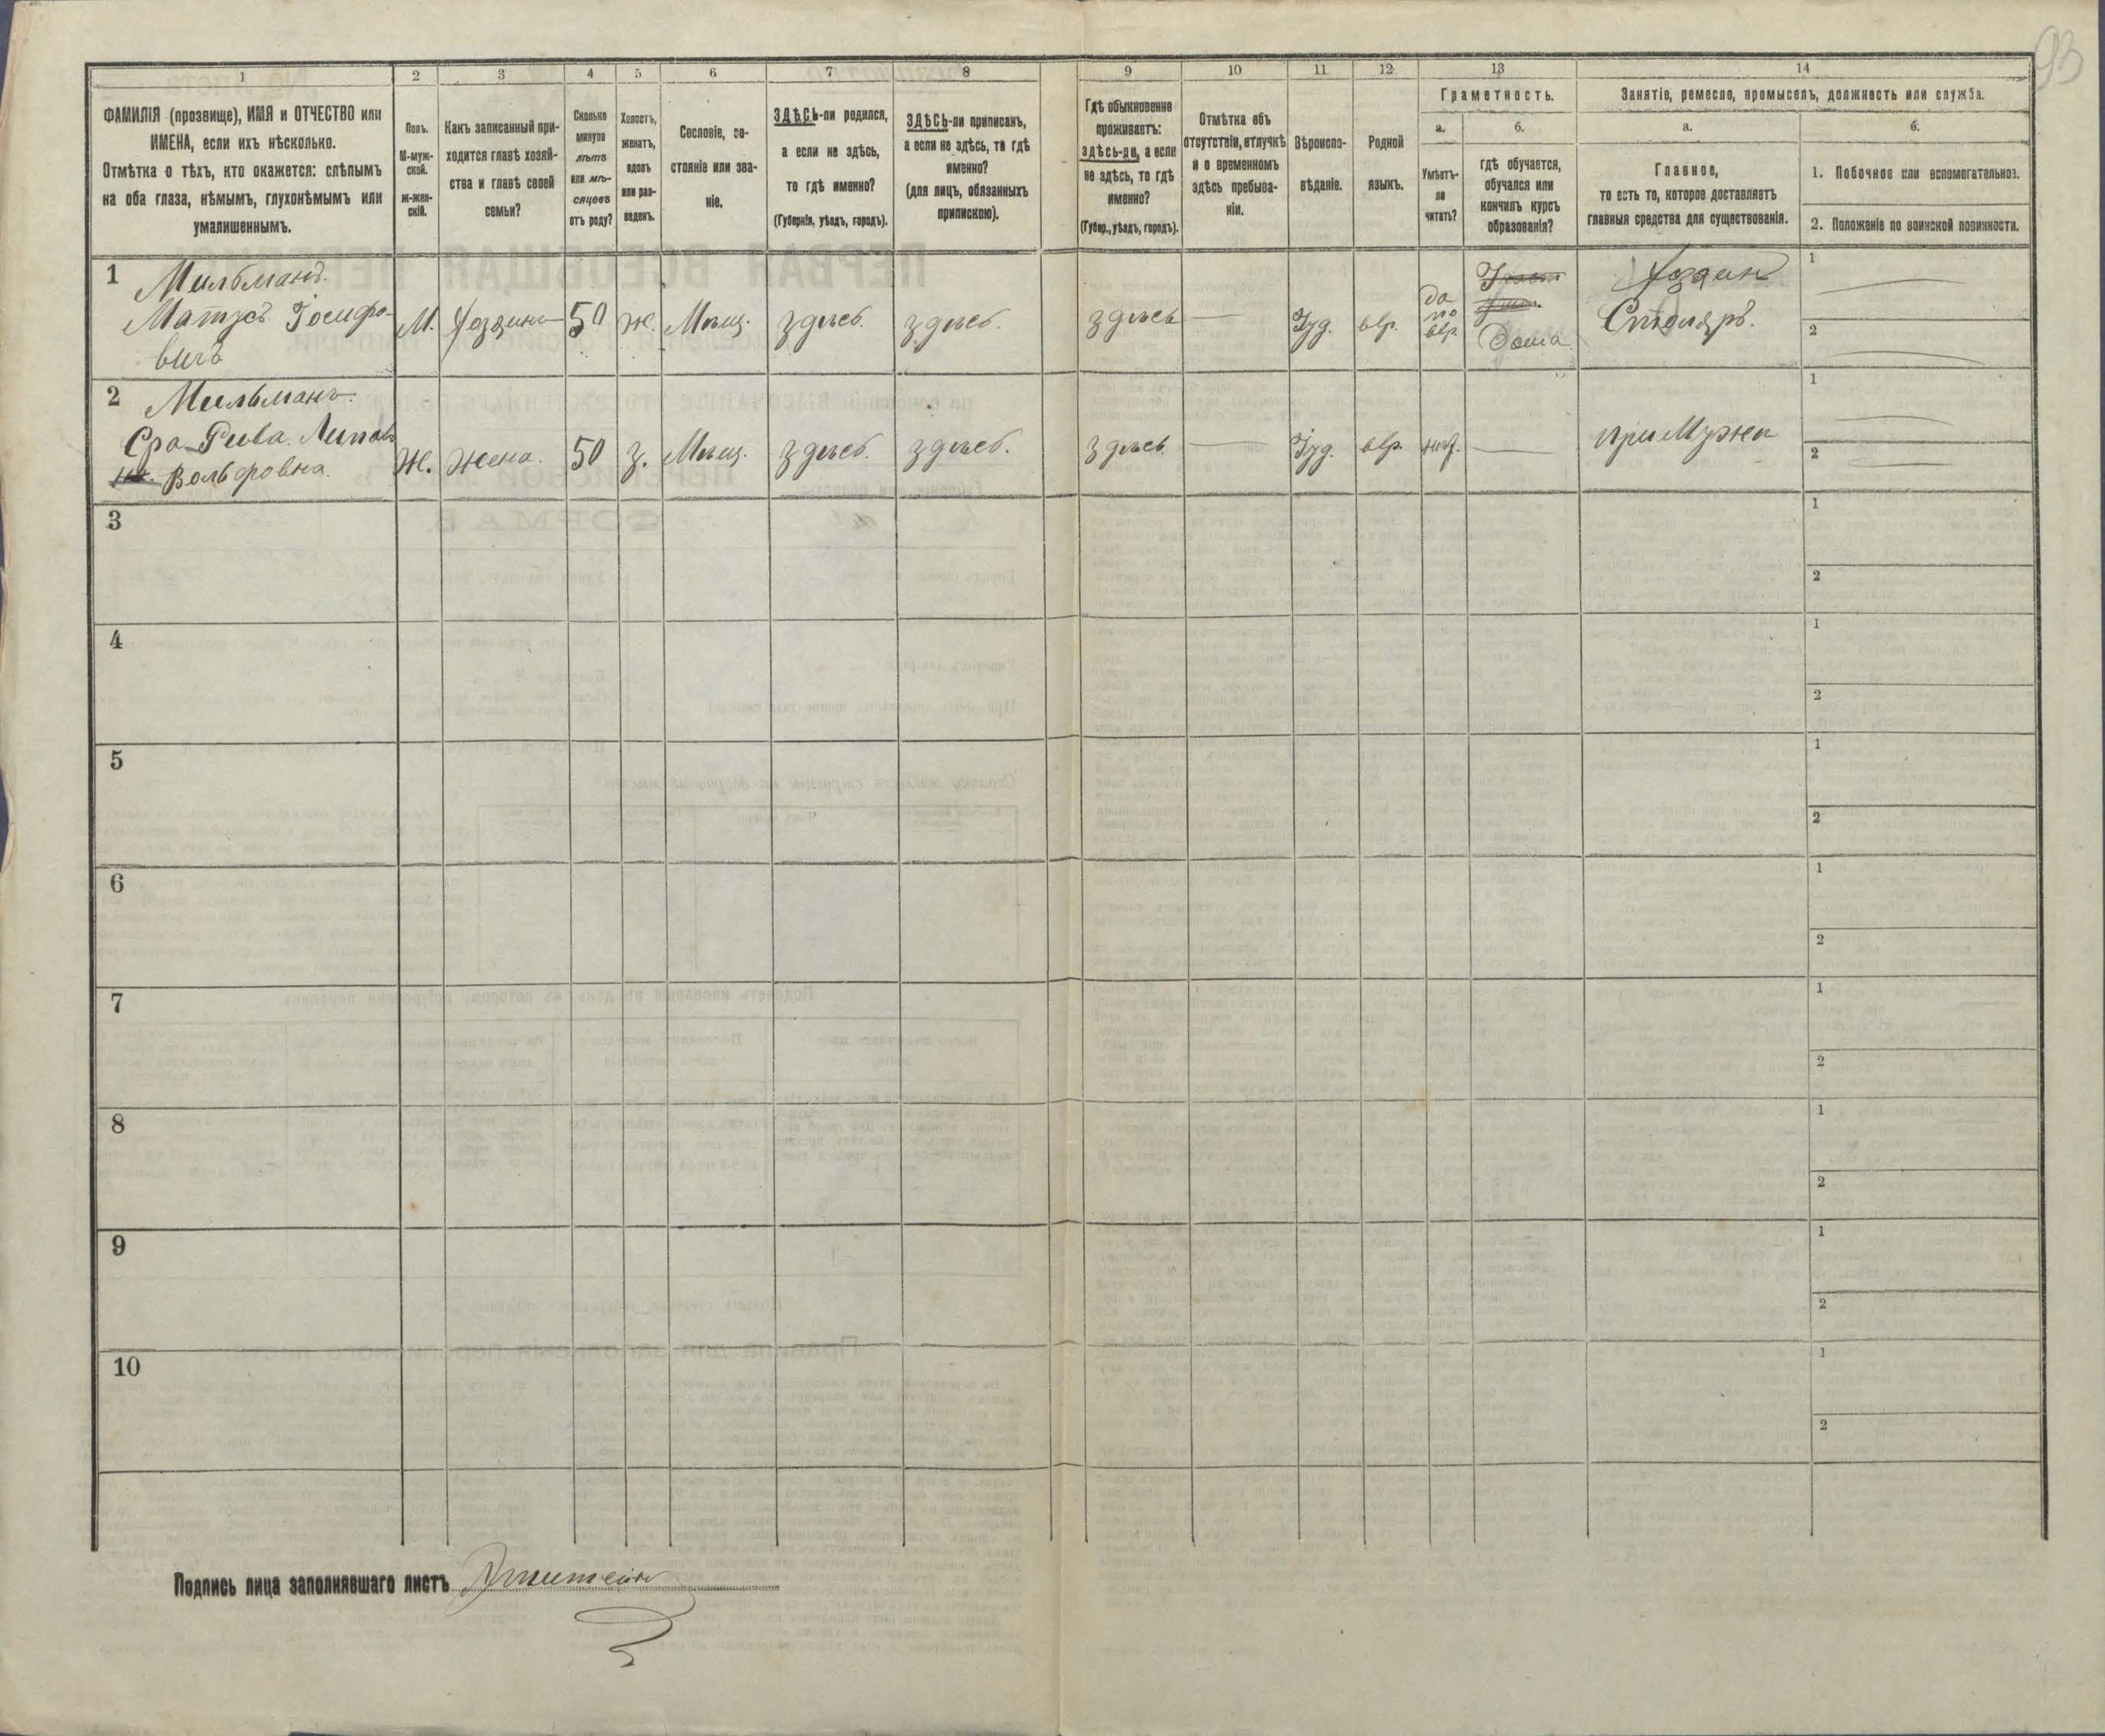 93
1 2 3 4 5 6 7 8 9 10 11 12 13 14
ФАМИЛІЯ (прозвище), ИМЯ и ОТЧЕСТВО или
ИМЕНА, если ихъ нѣсколько.
Отмѣтка о тѣхъ, кто окажется: слѣпымъ
на оба глаза, нѣмымъ, глухонѣмымъ или
умалишеннымъ.
Полъ.
М-муж-
ской.
ж-жен-
скій.
Какъ записанный при-
ходится главѣ хозяй-
ства и главѣ своей
семьи?
Сколько
минуло
лѣтъ
или мѣ-
сяцевъ
отъ роду?
Холостъ,
женатъ,
вдовъ
или раз-
веденъ.
Сословіе, со-
стояніе или зва-
ніе.
ЗДѢСЬ-ли родился,
а если не здѣсь,
то гдѣ именно?
(Губернія, уѣздъ, городъ).
ЗДѢСЬ-ли приписанъ,
а если не здѣсь, то гдѣ
именно?
(для лицъ, обязанныхъ
припискою).
Гдѣ обыкновенно
проживаетъ:
здѣсь-ли, а если
не здѣсь, то гдѣ
именно?
(Губер., уѣздъ, городъ).
Отмѣтка объ
отсутствіи, отлучкѣ
и о временномъ
здѣсь пребыва-
ніи.
Вѣроиспо-
вѣданіе.
Родной
языкъ.
Грамотность.
а.
Умѣетъ-
ли
читать?
б.
гдѣ обучается,
обучался или
кончилъ курсъ
образованія?
Занятіе, ремесло, промыселъ, должность или служба.
а.
Главное,
то есть то, которое доставляетъ
главныя средства для существованія.
б.
1. Побочное или вспомогательное.
2. Положеніе по воинской повинности.
1 Мильманъ
Матусъ Іосифо-
вичъ
М. Хозяинъ 50 ж. Мѣщ. здѣсь. здѣсь. здѣсь — Іуд. евр.
да
по
евр
Дома
Хозяин
Столяръ.
1
2
2 Мильманъ.
Сра-Рива
Вольфовна.
Ж. Жена. 50 з. Мѣщ. здѣсь. здѣсь. здѣсь — Іуд. евр. нѣт. —
при Мужѣ
1
2
3
1
2
4
1
2
5
1
2
6
1
2
7
1
2
8
1
2
9
1
2
10
1
2
Подпись лица заполнявшаго листъ